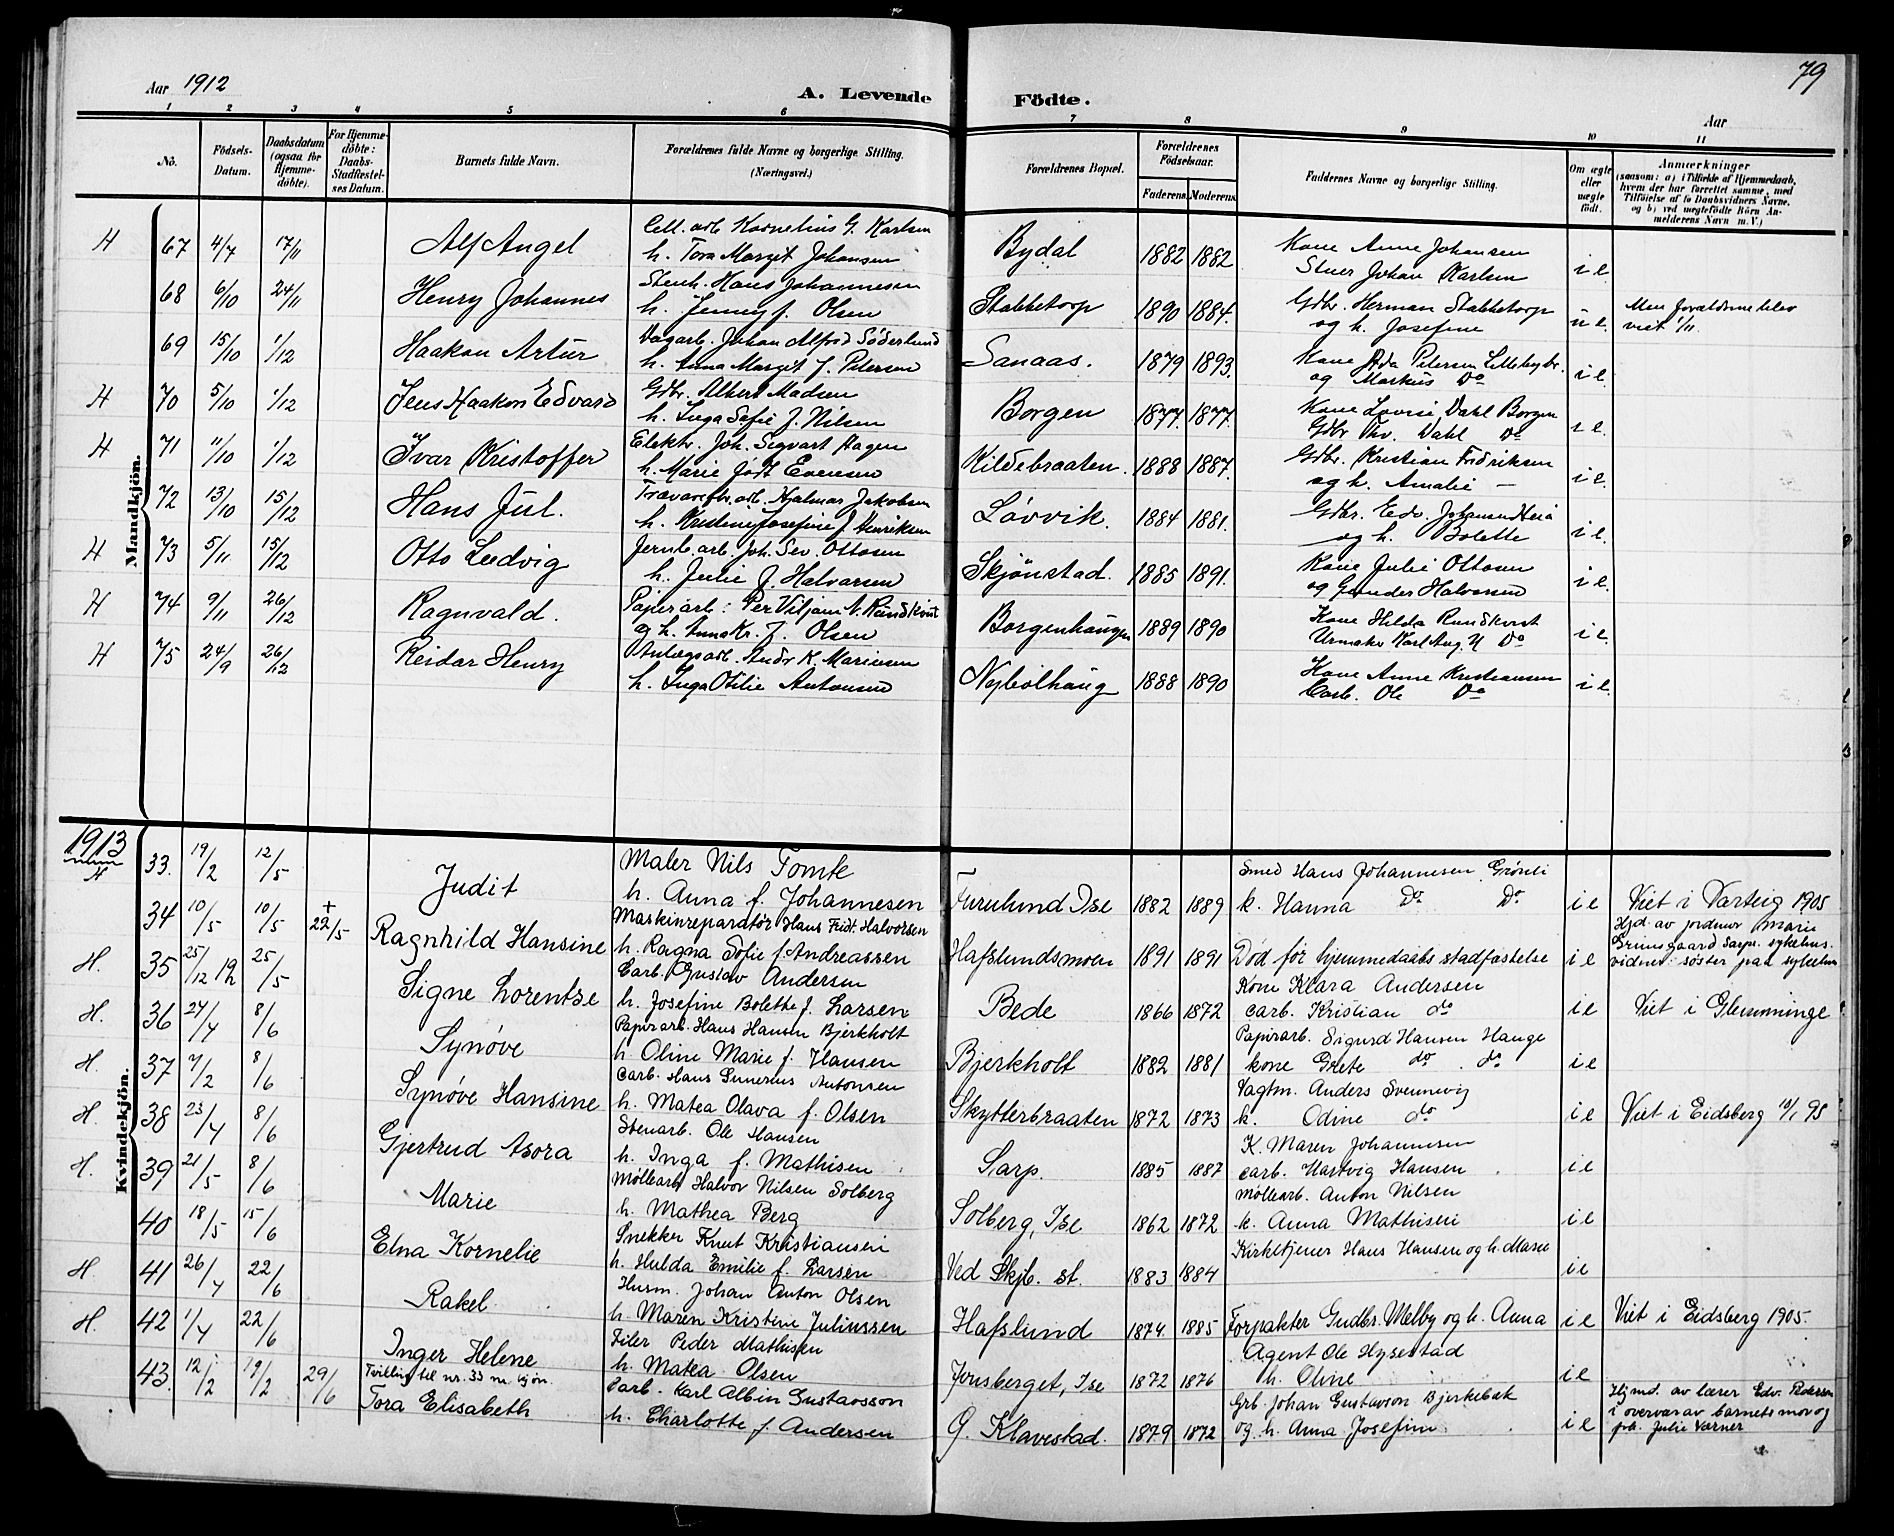 79
Aar 1912
A. Levende Födte.
Aar
1 2 3 4 5 6 7 8 9 10 11
No.
Födsels-Datum.
Daabsdatum (ogsaa for Hjemme-döbte).
For Hjemme-döbte: Daabs-Stadfæstel-ses Datum.
Barnets fulde Navn.
Forældrenes fulde Navne og borgerlige Stilling. (Næringsvei.)
Forældrenes Bopæl.
Forældrenes Födselsaar.
Faderens. Moderens.
Faddernes Navne og borgerlige Stilling.
Om ægte eller uægte födt.
Anmærkninger
(saasom: a) i Tilfælde af Hjemmedaab, hvem der har forrettet samme, med Tilföielse af to Daabsvidners Navne, og b) ved uægtefödte Börn An-melderens Navn m. V.)
Mandkjön.
H 67 4/7 17/11 Alf Angel Cell. arb. Kornelius G. Karlsen Bydal 1882 1882 Kone Anne Johansen i e.
h. Tora Marget Johansen Stuer Johan Karlsen
68 6/10 24/11 Henry Johannes Stenh. Hans Johannesen Stabbetorp 1890 1884. Gdbr. Herman Stabbetorp u e. Men forældrene blev
h. Jenny f. Olsen og h. Josefine viet 1/11.
69 15/10 1/12 Haakon Artur Vagarb. Johan Alfred Söderlund Sanaas. 1879 1893. Kone Ada Petersen Lilleby br. i e.
h. Anna Marget f. Petersen og Markus Do
H 70 5/10 1/12 Jens Haakon Edvard Gdbr. Albert Madsen Borgen 1877. 1877. Kone Lovise Dahl Borgen i e.
h. Inga Sofie f. Nilsen Gdbr Thv. Dahl Do
H 71 11/10 1/12 Ivar Kristoffer Elektr. Joh. Segvart Hagen Kildebraaten. 1888 1887. Gdbr. Kristian Fredriksen i e.
h. Marie født Evensen og h. Amalie —
72 13/10 15/12 Hans Jul. Trævarefbr. arb. Hjalmar Jakobsen Løvvik. 1884 1881. Gdbr. Edv. Johansen Heia i e.
h. Kristine Josefine f. Henriksen og h. Bolette
H 73 5/11 15/12 Otto Ludvig Jernb. arb. Joh. Sev. Ottosen Skjønstad. 1885 1891. Kone Julie Ottosen i e.
h. Julie f. Halvorsen og Gunder Halvorsen
H 74 9/11 26/12 Ragnvald. Papirarb: Per Viljam N. Rundkvist Borgenhaugen 1889 1890 Kone Hilda Rundkvist i e.
og h. Anna Kr. f. Olsen Urmaker Karl Aug. N Do
H 75 24/9 26/12 Reidar Henry Anlægsarb. Andr K. Mariusen Nybolhaug 1888 1890 Kone Anne Kristiansen i e.
h. Inga Otilie Antonsen Carb. Ole Do
1913
Kvindekjön.
H 33. 19/2 12/5 Judit Maler Nils Tomte Furulund Ise 1882 1889 Smed Hans Johannesen Grönli i e Viet i Varteig 1905
h. Anna f. Johannesen k. Hanna Do Do
34 10/5 10/5 + 22/5 Ragnhild Hansine Maskinreparatör Hans Fridt. Halvorsen Hafslundsmoen 1891 1891 Død før hjemmedaabs stadfæstelse i e Hjd. av jordmor Marie
h. Ragna Sofie f. Andreassen Grimsgaard Sarps. sykehus. vidner: søster paa sykehus
H. 35 25/12 12 25/5 Signe Lorentze Carb. Gustav Andersen Bede 1866 1872 Kone Klara Andersen i e Viet i Glemminge
h. Josefine Bolette f. Larsen carb. Kristian do
H. 36 24/4 8/6 Synøve Papirarb. Hans Hansen Bjerkholt Bjerkholt 1882 1881 Papirarb. Sigurd Hansen Hauge i e
h. Oline Marie f. Hansen kone Grete do do
H. 37 7/2 8/6 Synøve Hansine Carb. Hans Gunerius Antonsen Skytterbraaten 1872 1873 Vagtm. Anders Svennevig i e Viet i Eidsberg 10/1 95
h. Matea Olava f. Olsen k. Odine do
H. 38 23/4 8/6 Gjertrud Asora Stenarb. Ole Hansen Sarp. 1885 1887 K. Maren Johannesen i e
h. Inga f. Mathisen carb. Hartvig Hansen
H. 39 21/5 8/6 Marie Møllearb Halvor Nilsen Solberg Solberg, Ise 1862 1872 Møllearb. Anton Nilsen i e
h. Mathea Berg k. Anna Mathisen
40 18/5 15/6 Elna Kornelie Snekker Knut Kristiansen Ved Skjb. st. 1883 1884 Kirketjener Hans Hansen og h. Marie i e
h. Hulda Emilie f. Larsen
H. 41 26/4 22/6 Rakel Husm. Johan Anton Olsen Hafslund 1874. 1885 Forpakter Gudbr. Melby og h. Anna i e Viet i Eidsberg 1905.
h. Maren Kristine Juliussen
H. 42 1/4 22/6 Inger Helene Filer Peder Mathisen Jonsberget, Ise 1872 1876 Agent Ole Hysestad i e
h. Matea Olsen h. Oline
43. 12/2 19/2 29/6 Tvilling til nr. 33 m. kjøn. Tora Elisabeth Carb. Karl Albin Gustavsson G. Klavestad. 1879 1872 Grb. Johan Gustavson Bjerkebæk i e Hjmd. av lærer Edv. Pedersen
h. Charlotte f. Andersen og h. Anna Josefine i overvær av barnets mor og frk. Julie Værner